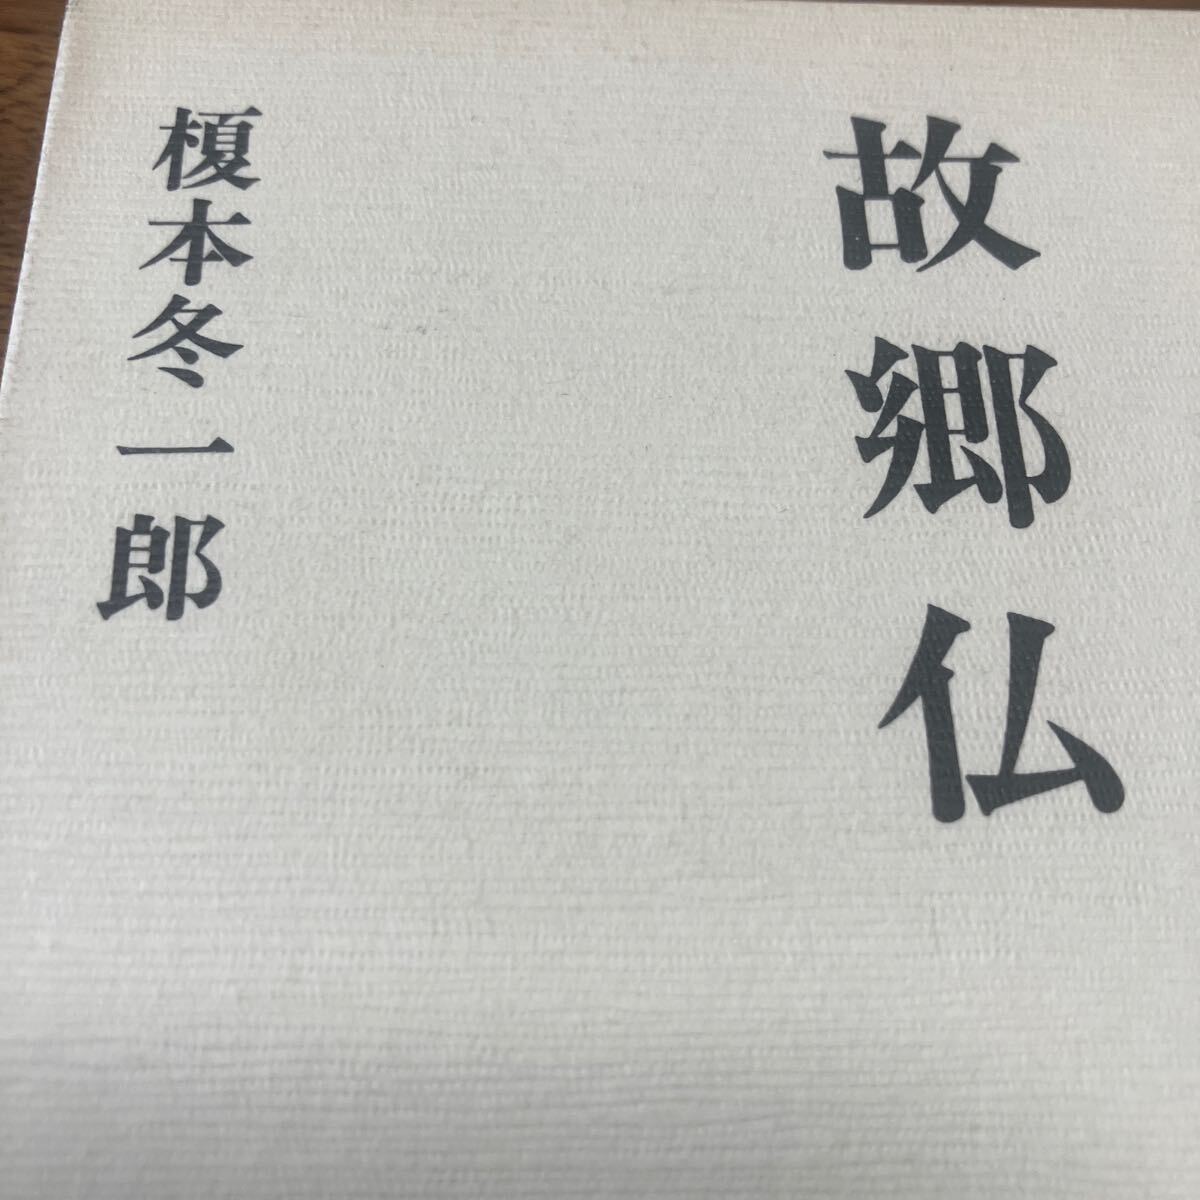 故郷仏
榎本冬一郎